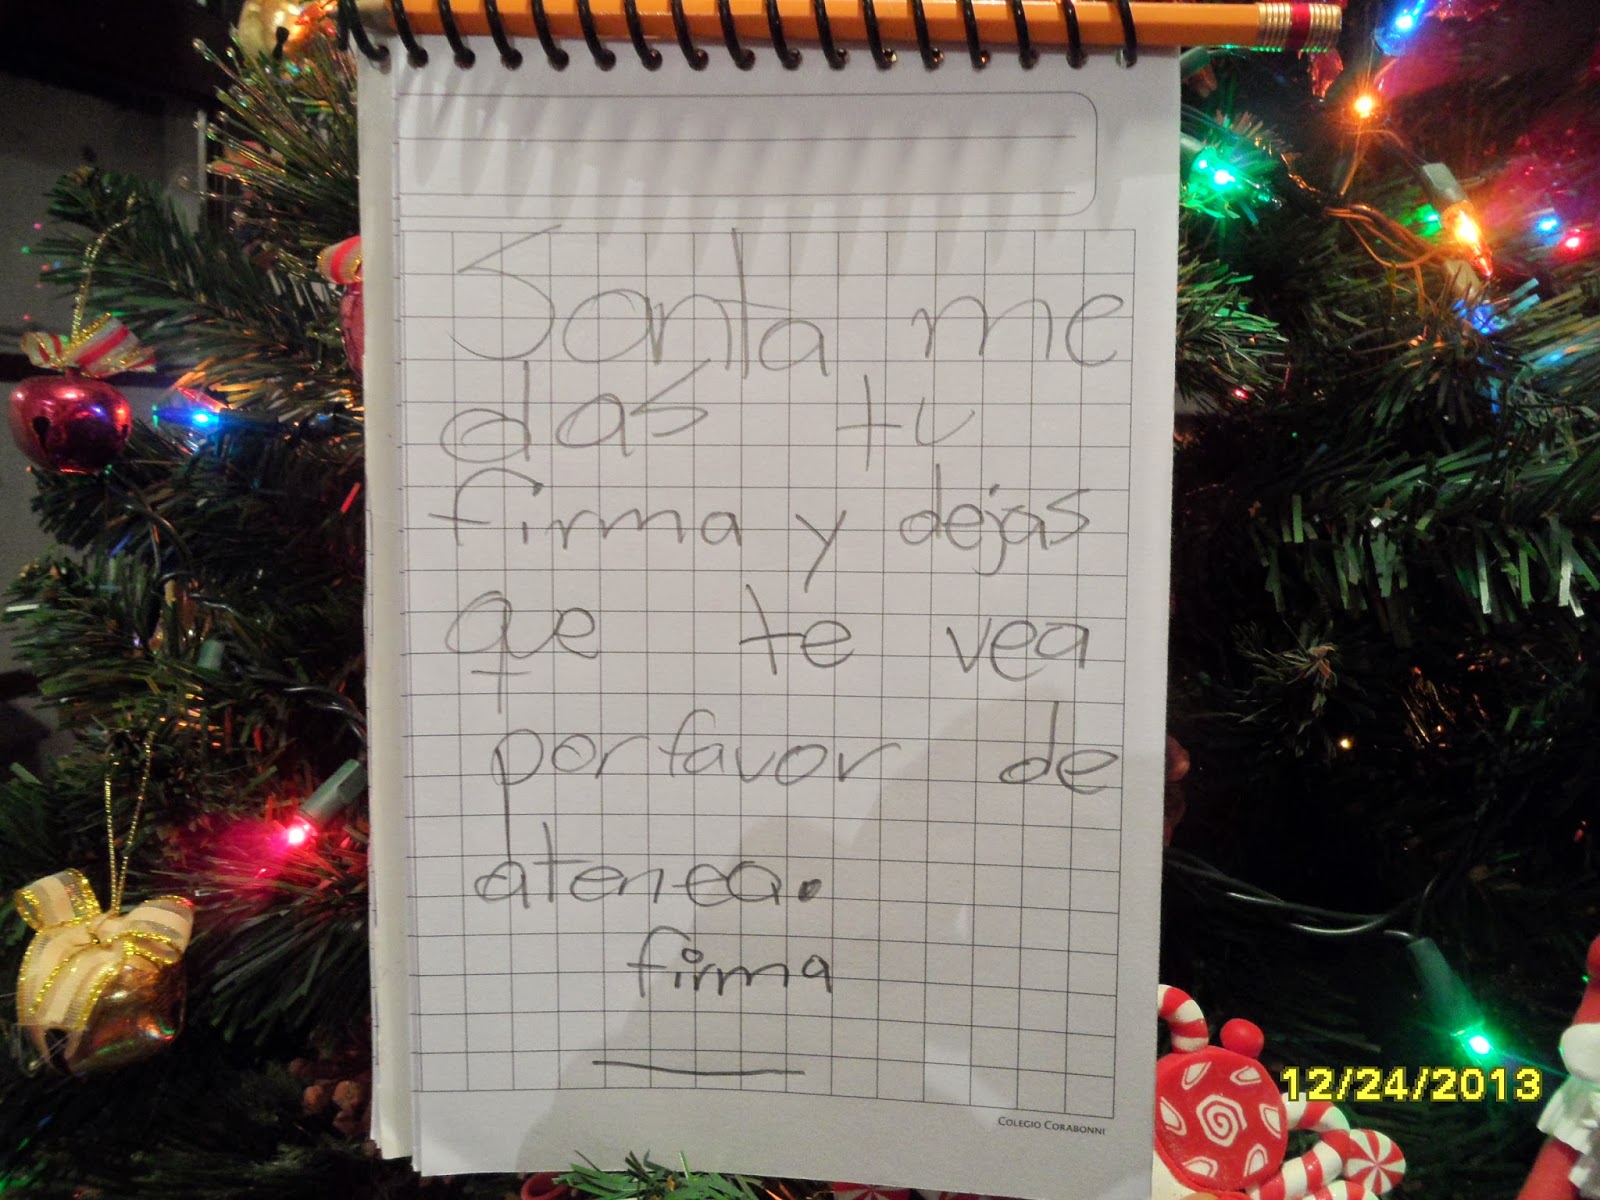 Santa me
das tu
firma y dejas
que te vea
porfavor de
atenea.
firma
COLEGIO CORABONNI
12/24/2013